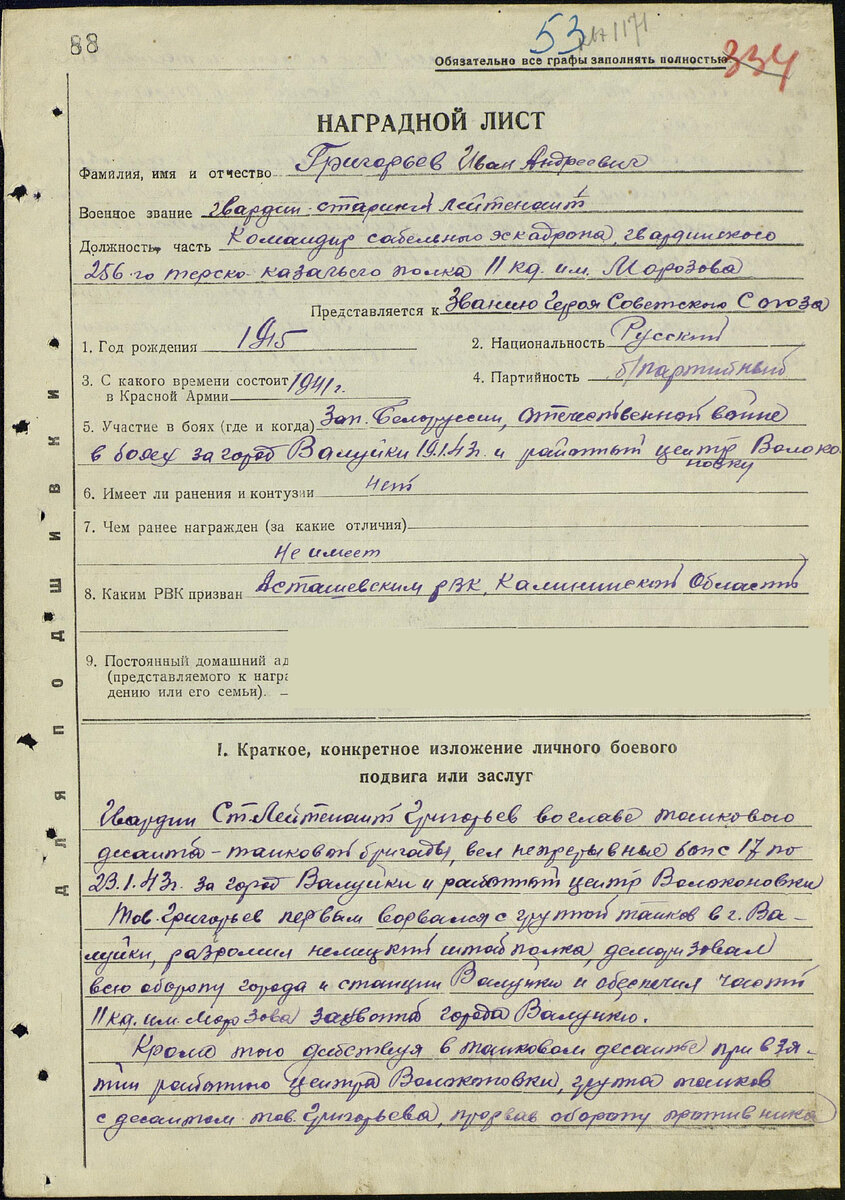 88
53
1171
334
Обязательно все графы заполнять полностью
НАГРАДНОЙ ЛИСТ
Фамилия, имя и отчество Григорьев Иван Андреевич
Военное звание гвардии старший лейтенант
Должность, часть Командир сабельного эскадрона, гвардейского
256-го терско-казачьего полка 11 кд. им. Морозова
Представляется к Званию Героя Советского Союза
1. Год рождения 1915
2. Национальность Русский
3. С какого времени состоит в Красной Армии 1941 г.
4. Партийность б/партийный
5. Участие в боях (где и когда) Зап. Белоруссии, отечественной войне
в боях за город Валуйки 19.1.43г. и районный центр Волоко-
новку
6. Имеет ли ранения и контузии нет
7. Чем ранее награжден (за какие отличия)
Не имеет
8. Каким РВК призван Асташевским рвк, Калининской Области
9. Постоянный домашний ад
(представляемого к награ
дению или его семьи).
I. Краткое, конкретное изложение личного боевого
подвига или заслуг
Гвардии Ст.Лейтенант Григорьев во главе танкового
десанта - танковой бригады, вел непрерывные бои с 17 по
23.1.43г. за город Валуйки и районный центр Волоконовки
Тов. Григорьев первым ворвался с группой танков в г. Ва-
луйки, разгромил немецкий штаб полка, деморизовал
всю оборону города и станции Валуйки и обеспечил части
11 кд. им. Морозова захвата города Валуйки.
Кроме того действуя в танковом десанте при взя-
тии районного центра Волоконовки, группа танков
с десантом тов. Григорьева, прорвав оборону противника
ДЛЯ ПОДШИВКИ